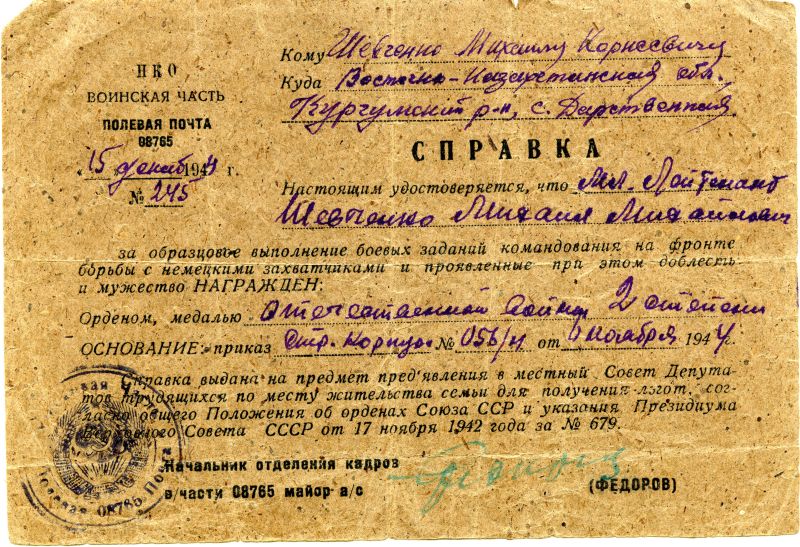 НКО
ВОИНСКАЯ ЧАСТЬ
ПОЛЕВАЯ ПОЧТА
08765
"15" декаб 1944 г.
№ 245
Кому Шевченко Михаилу Корнеевичу
Куда Восточно-Казахстанская обл.
р-н, с. Дарственная
СПРАВКА
Настоящим удостоверяется, что мл. Лейтенант
Шевченко Михаил Михайлович
за образцовое выполнение боевых заданий командования на фронте
борьбы с немецкими захватчиками и проявленные при этом доблесть
и мужество НАГРАЖДЕН:
Орденом, медалью Отечественной войны 2 степени
ОСНОВАНИЕ: приказ Стр. Корпус № 056/н от ноября 1944 г.
Справка выдана на предмет пред'явления в местный Совет Депута-
тов трудящихся по месту жительства семьи для получения льгот, сог-
ласно общего Положения об орденах Союза ССР и указания Президиума
Верховного Совета СССР от 17 ноября 1942 года за № 679.
Начальник отделения кадров
в/части 08765 майор а/с
(ФЕДОРОВ)
Полевая Почта 08765